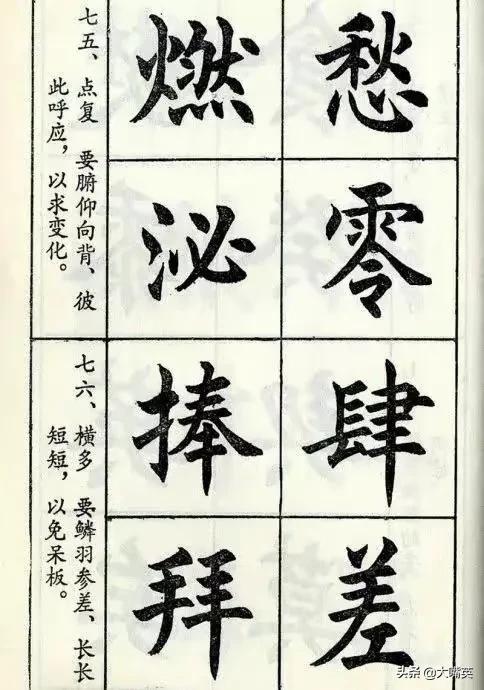 愁零
燃泌
七五、点复 要腑仰向背、彼
此呼应，以求变化。
肆差
捧拜
七六、横多 要鳞羽参差、长长
短短，以免呆板。
头条 @大嘴英